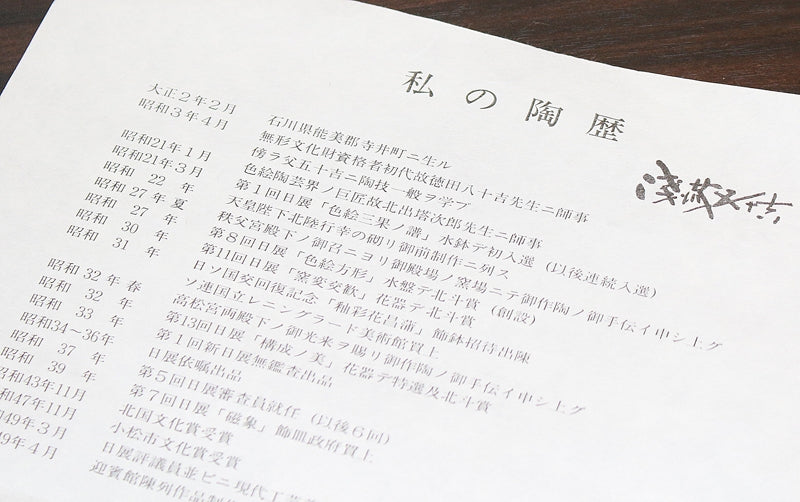 私の陶歴
淺蔵五十吉
大正2年2月
昭和3年4月
昭和21年1月
昭和21年3月
昭和 22 年
昭和 27年 夏
昭和 27 年
昭和 30 年
昭和 31 年
昭和 32年 春
昭和 32 年
昭和 33 年
昭和34〜36年
昭和 37 年
昭和 39 年
昭和43年11月
和47年11月
49年3月
49年4月
石川県能美郡寺井町ニ生ル
無形文化財資格者初代故徳田八十吉先生ニ師事
傍ヲ父五十吉ニ陶技一般ヲ学ブ
色絵陶芸界ノ巨匠故北出塔次郎先生ニ師事
第1回日展「色絵三果ノ譜」水鉢デ初入選(以後連続入選)
天皇陛下北陸行幸の砌リ御前制作ニ列ス
秩父宮殿下ノ御召ニヨリ御殿場ノ窯場ニテ御作陶ノ御手伝イ申シ上グ
第8回日展「色絵方形」水盤デ北斗賞(創設)
第11回日展「窯変交歓」花器デ北斗賞
日ソ国交回復記念「釉彩花昌蒲」飾鉢招待出陳
ソ連国立レニングラード美術館買上
高松宮両殿下ノ御光来ヲ賜リ御作陶ノ御手伝イ申シ上グ
第13回日展「構成ノ美」花器デ特選及北斗賞
第1回新日展無鑑査出品
日展依嘱出品
第5回日展審査員就任(以後6回)
第7回日展「磁象」飾皿政府買上
北国文化賞受賞
小松市文化賞受賞
日展評議員並ビニ現代工芸
迎賓館陳列作品制